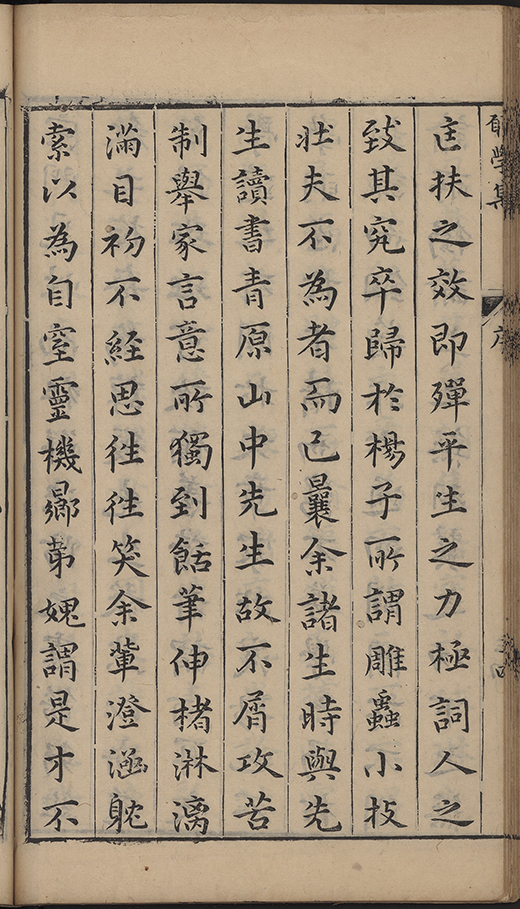 學集 序
匡扶之效即殫平生之力極詞人之
致其究卒歸於楊子所謂雕蟲小技
壯夫不為者而已曩余諸生時與先
生讀書青原山中先生故不屑攻苦
制舉家言意所獨到餂筆伸楮淋漓
滿目初不經思往往笑余輩澄涵躭
索以為自窒靈機曏苐媿謂是才不